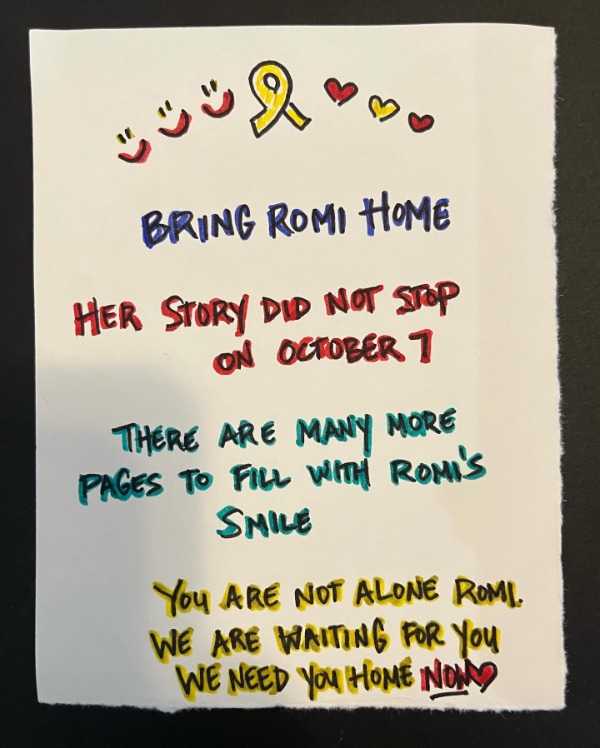 BRING ROMI HOME
HER STORY DID NOT STOP
ON OCTOBER 7
THERE ARE MANY MORE
PAGES TO FILL WITH ROMI'S
SMILE
YOU ARE NOT ALONE ROMI.
WE ARE WAITING FOR YOU
WE NEED YOU HOME NOW